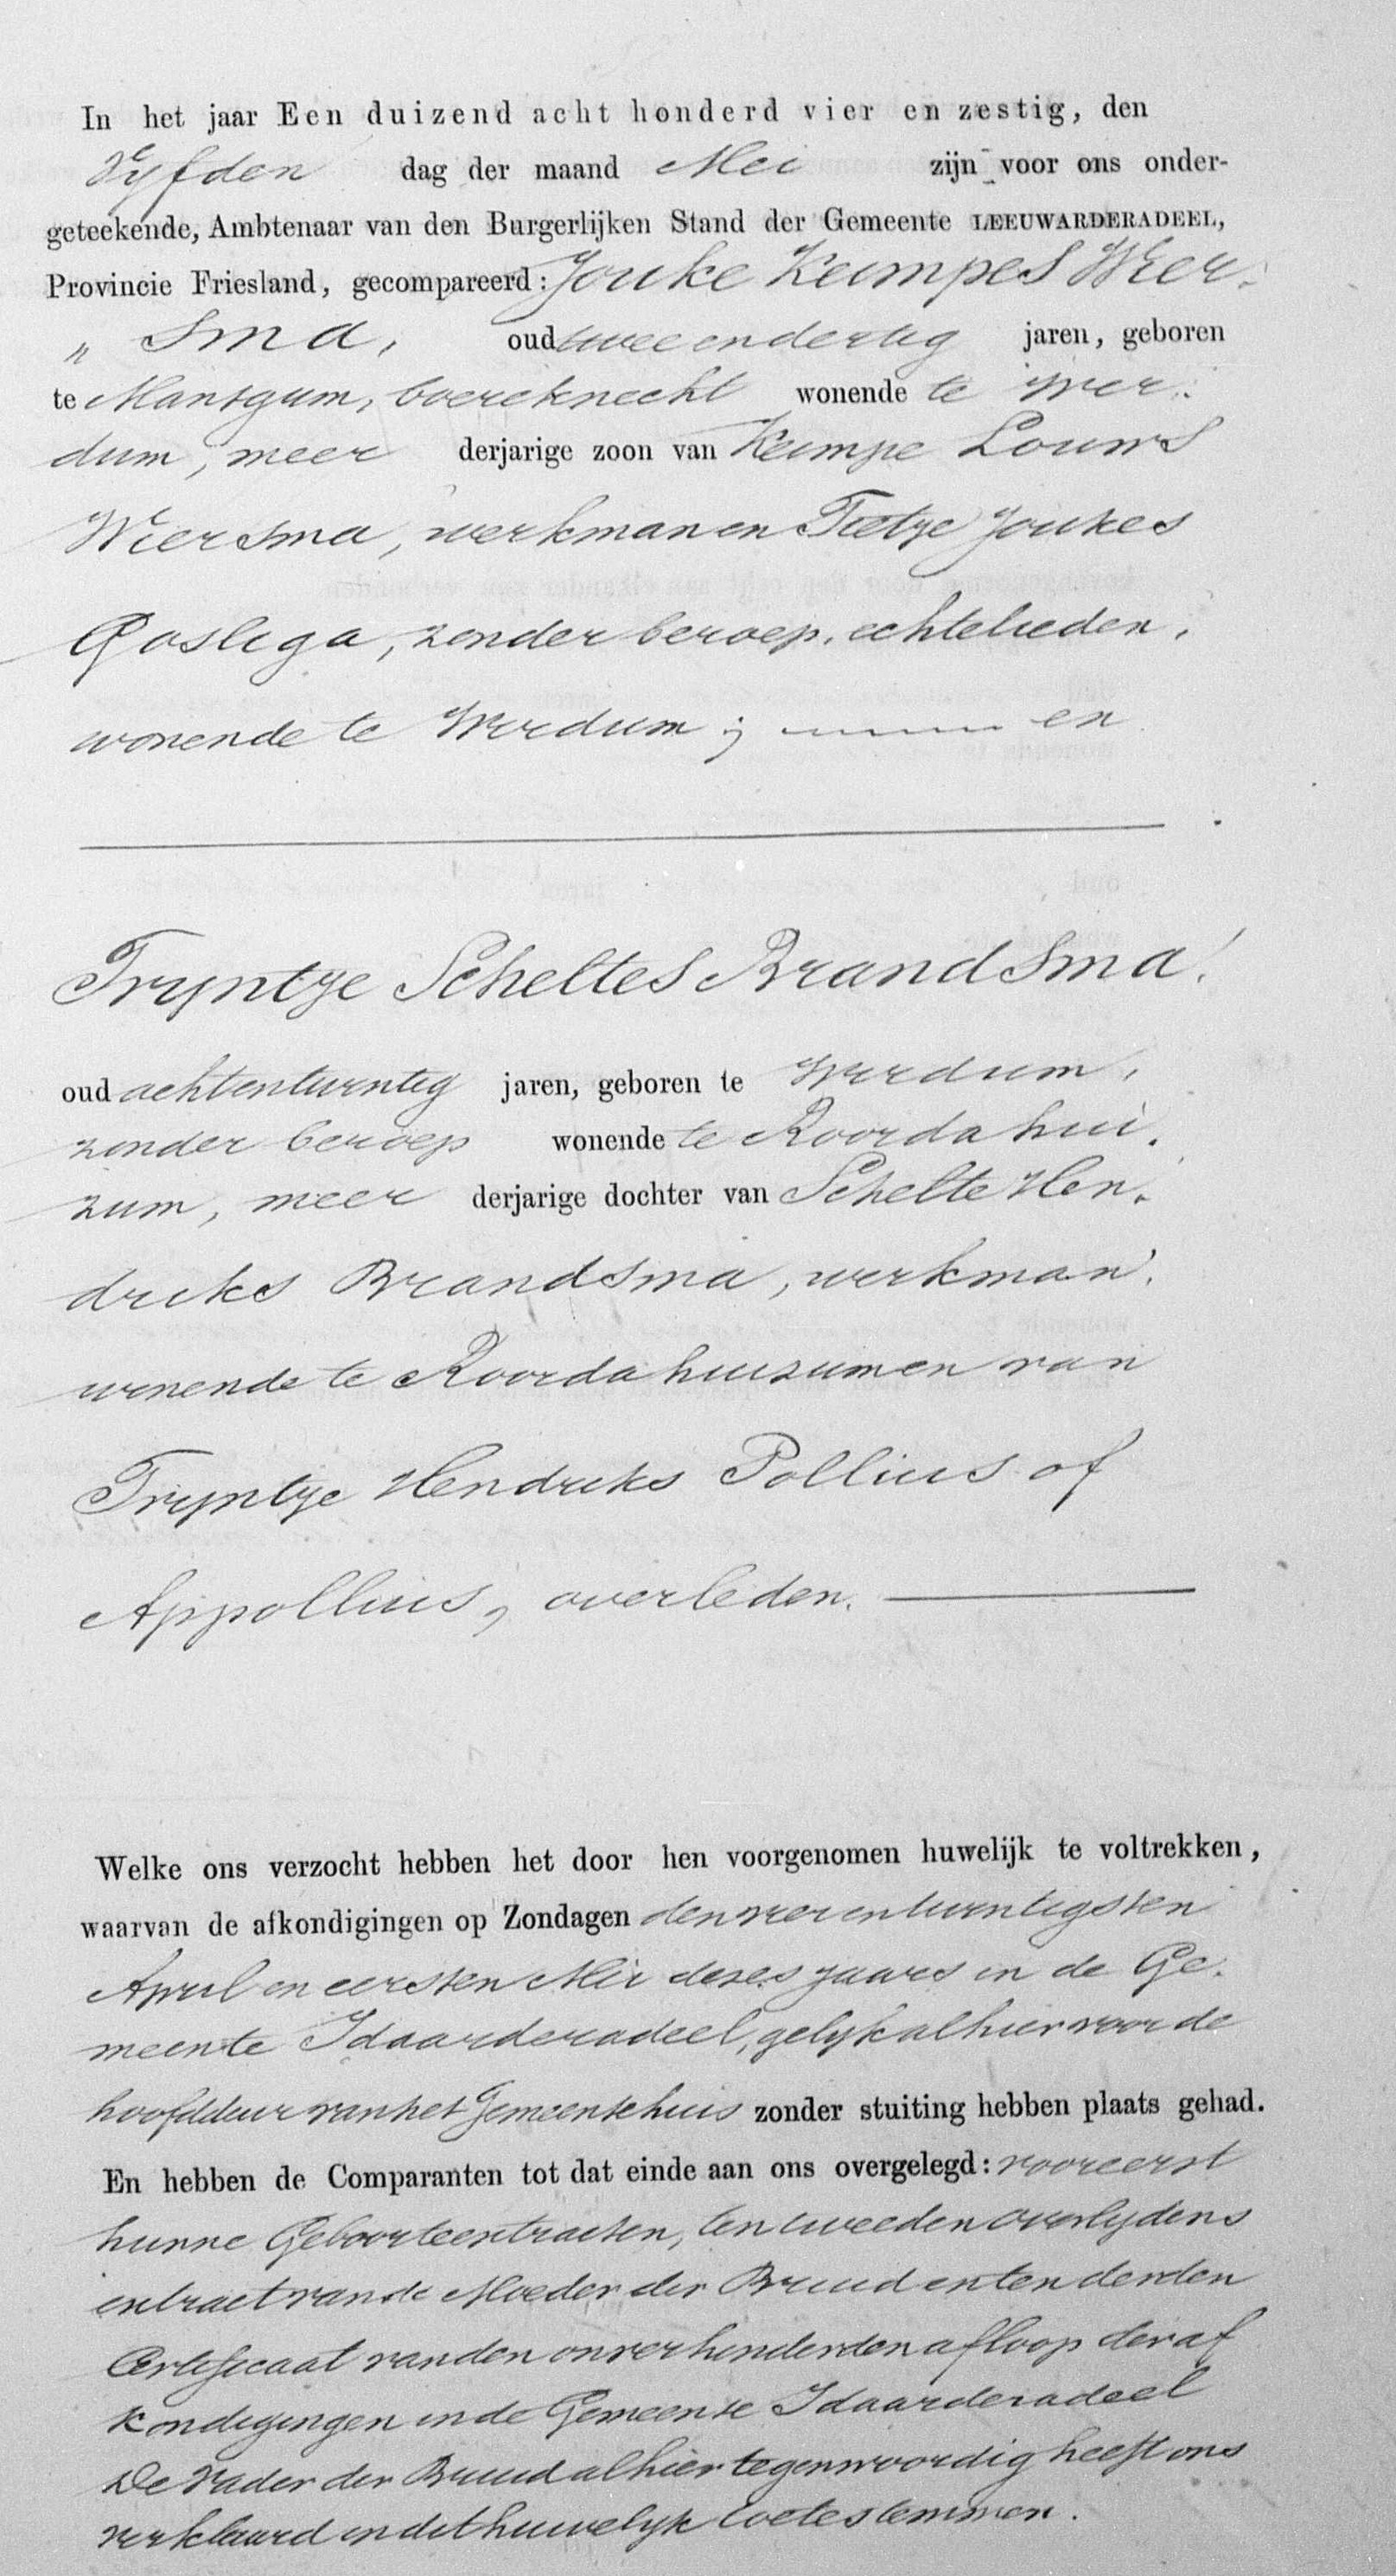 In het jaar Een duizend acht honderd vier en zestig, den
Vyfden dag der maand Mei zijn voor ons onder-
geteekende, Ambtenaar van den Burgerlijken Stand der Gemeente LEEUWARDERADEEL,
Provincie Friesland, gecompareerd: Jouke Kempes Wier-
„ sma, oud twee en dertig jaren, geboren
te Mantgum, boereknecht wonende te Wir-
dum, meer derjarige zoon van Kempe Louws
Wiersma, werkman en Tietje Joukes
Gosliga, zonder beroep, echtelieden,
wonende te Wirdum; en
Tryntje Scheltes Brandsma,
oud achtentwintig jaren, geboren te Wirdum,
zonder beroep wonende te Roordahui-
zum, meer derjarige dochter van Schelte Hen-
driks Brandsma, werkman,
wonende te Roordahuizum en van
Tryntje Hendriks Pollius of
Appollius, overleden.
Welke ons verzocht hebben het door hen voorgenomen huwelijk te voltrekken,
waarvan de afkondigingen op Zondagen den vierentwintigsten
April en eersten Mei dezes jaars in de Ge-
meente Idaarderadeel, gelyk alhier voor de
hoofddeur van het Gemeentehuis zonder stuiting hebben plaats gehad.
En hebben de Comparanten tot dat einde aan ons overgelegd: vooreerst
hunne Geboorteextracten, ten tweeden overlydens
extract van de Moeder der Bruid en ten derden
Certificaat van den onverhinderden afloop der af
kondigingen in de Gemeente Idaarderadeel
De Vader der Bruid alhier tegenwoordig heeft ons
verklaard in dit huwelyk toetestemmen.